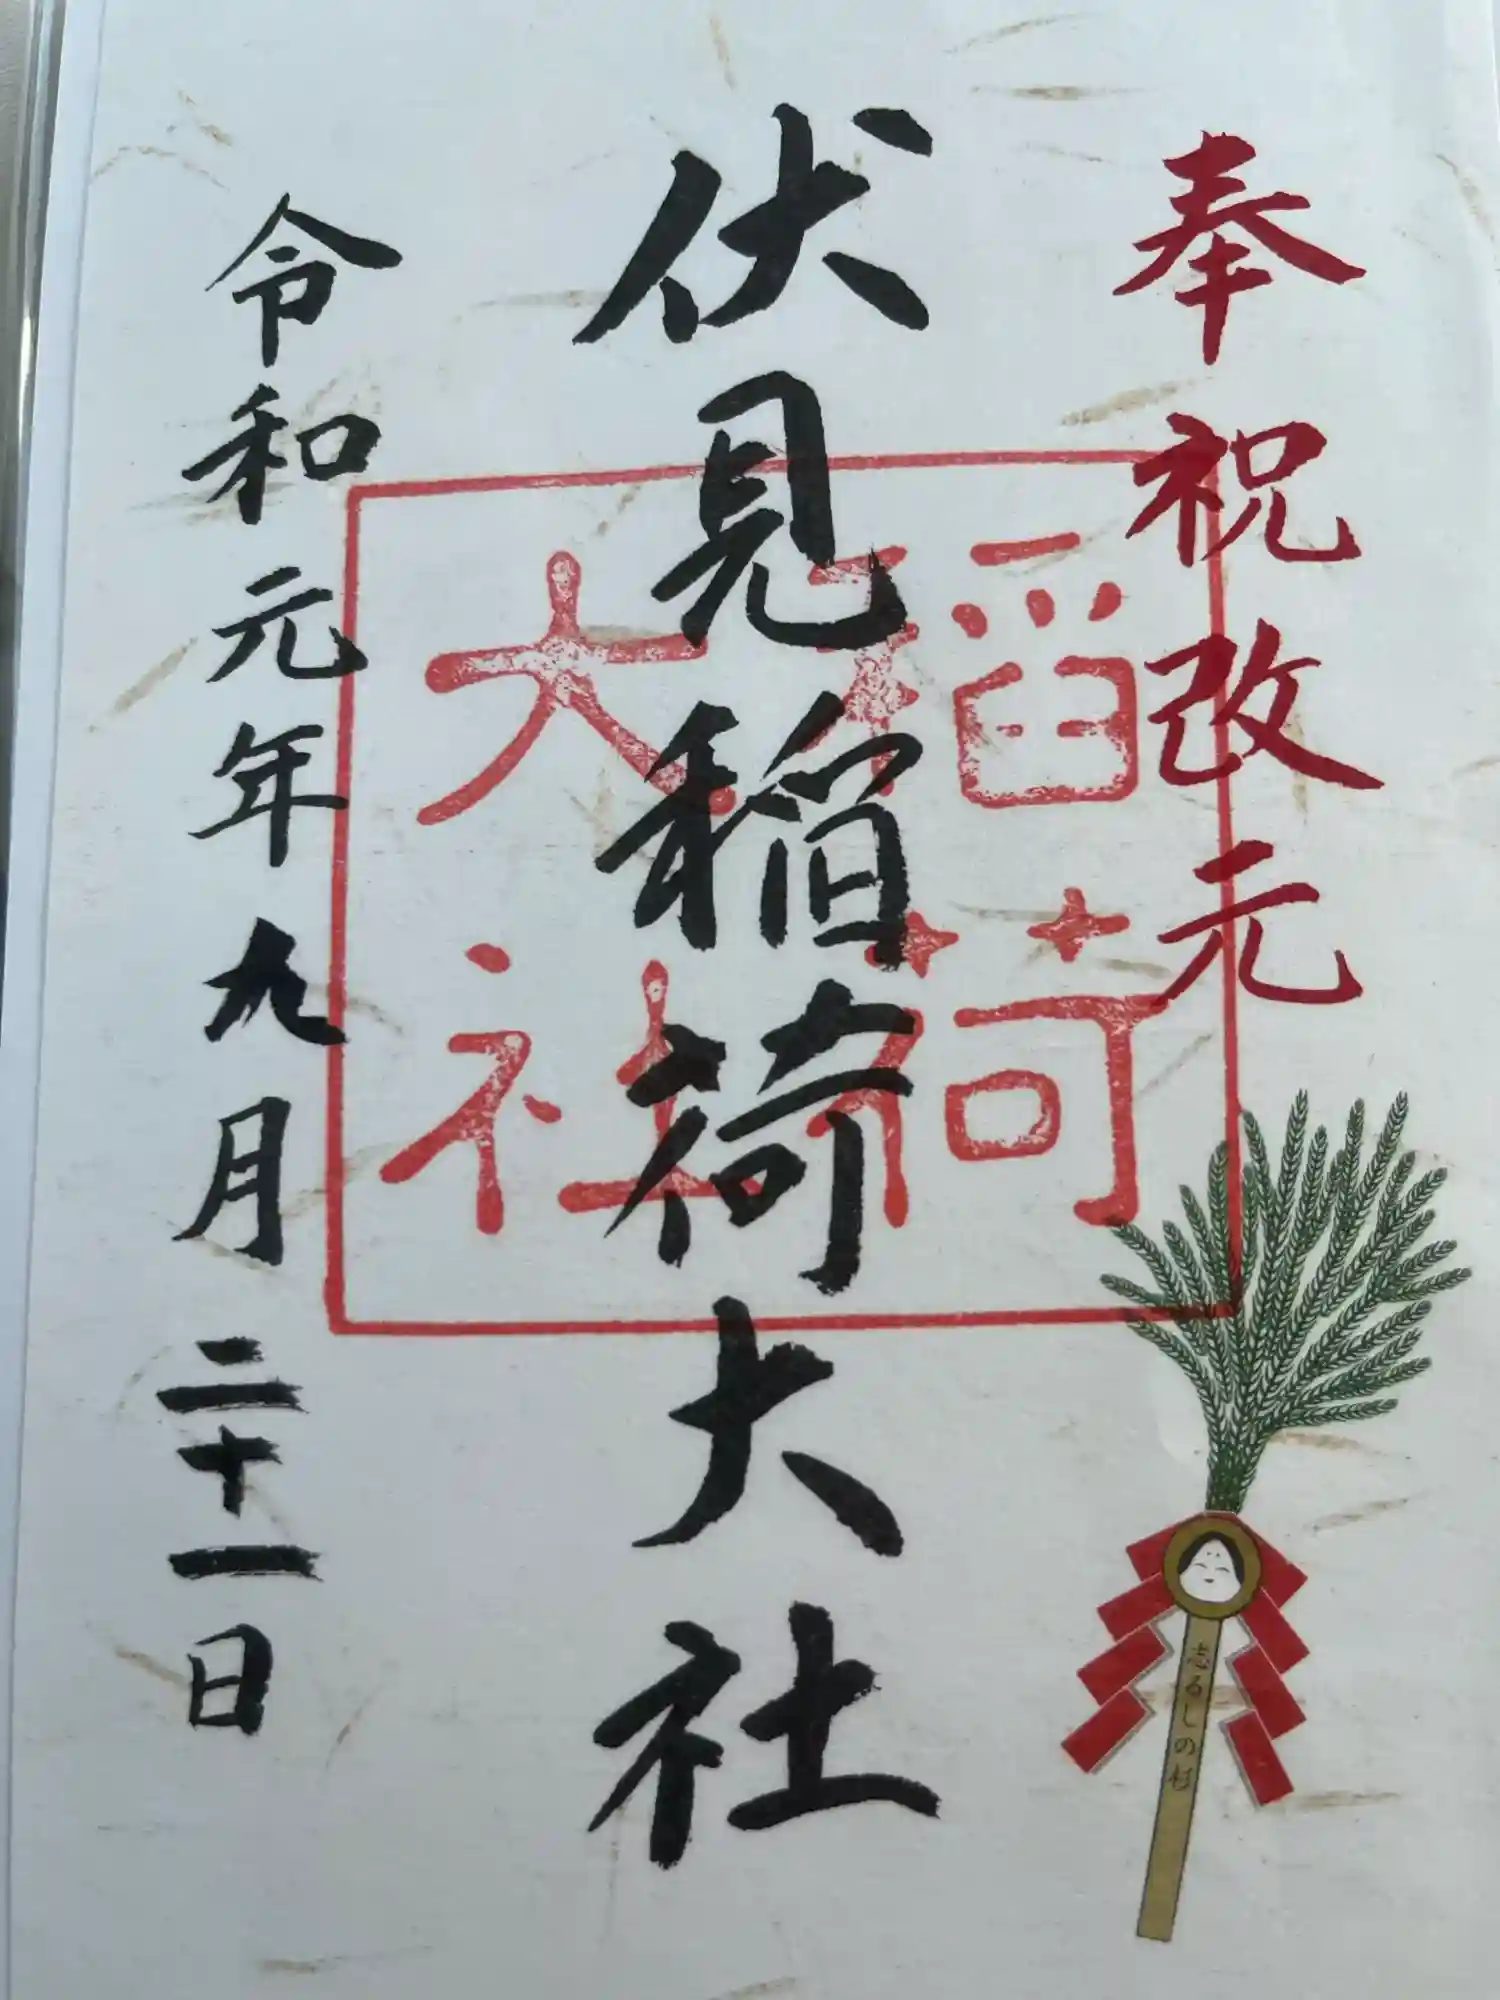 奉祝改元
伏見稲荷大社
稲荷
大社
令和元年九月二十一日
しるしの杉